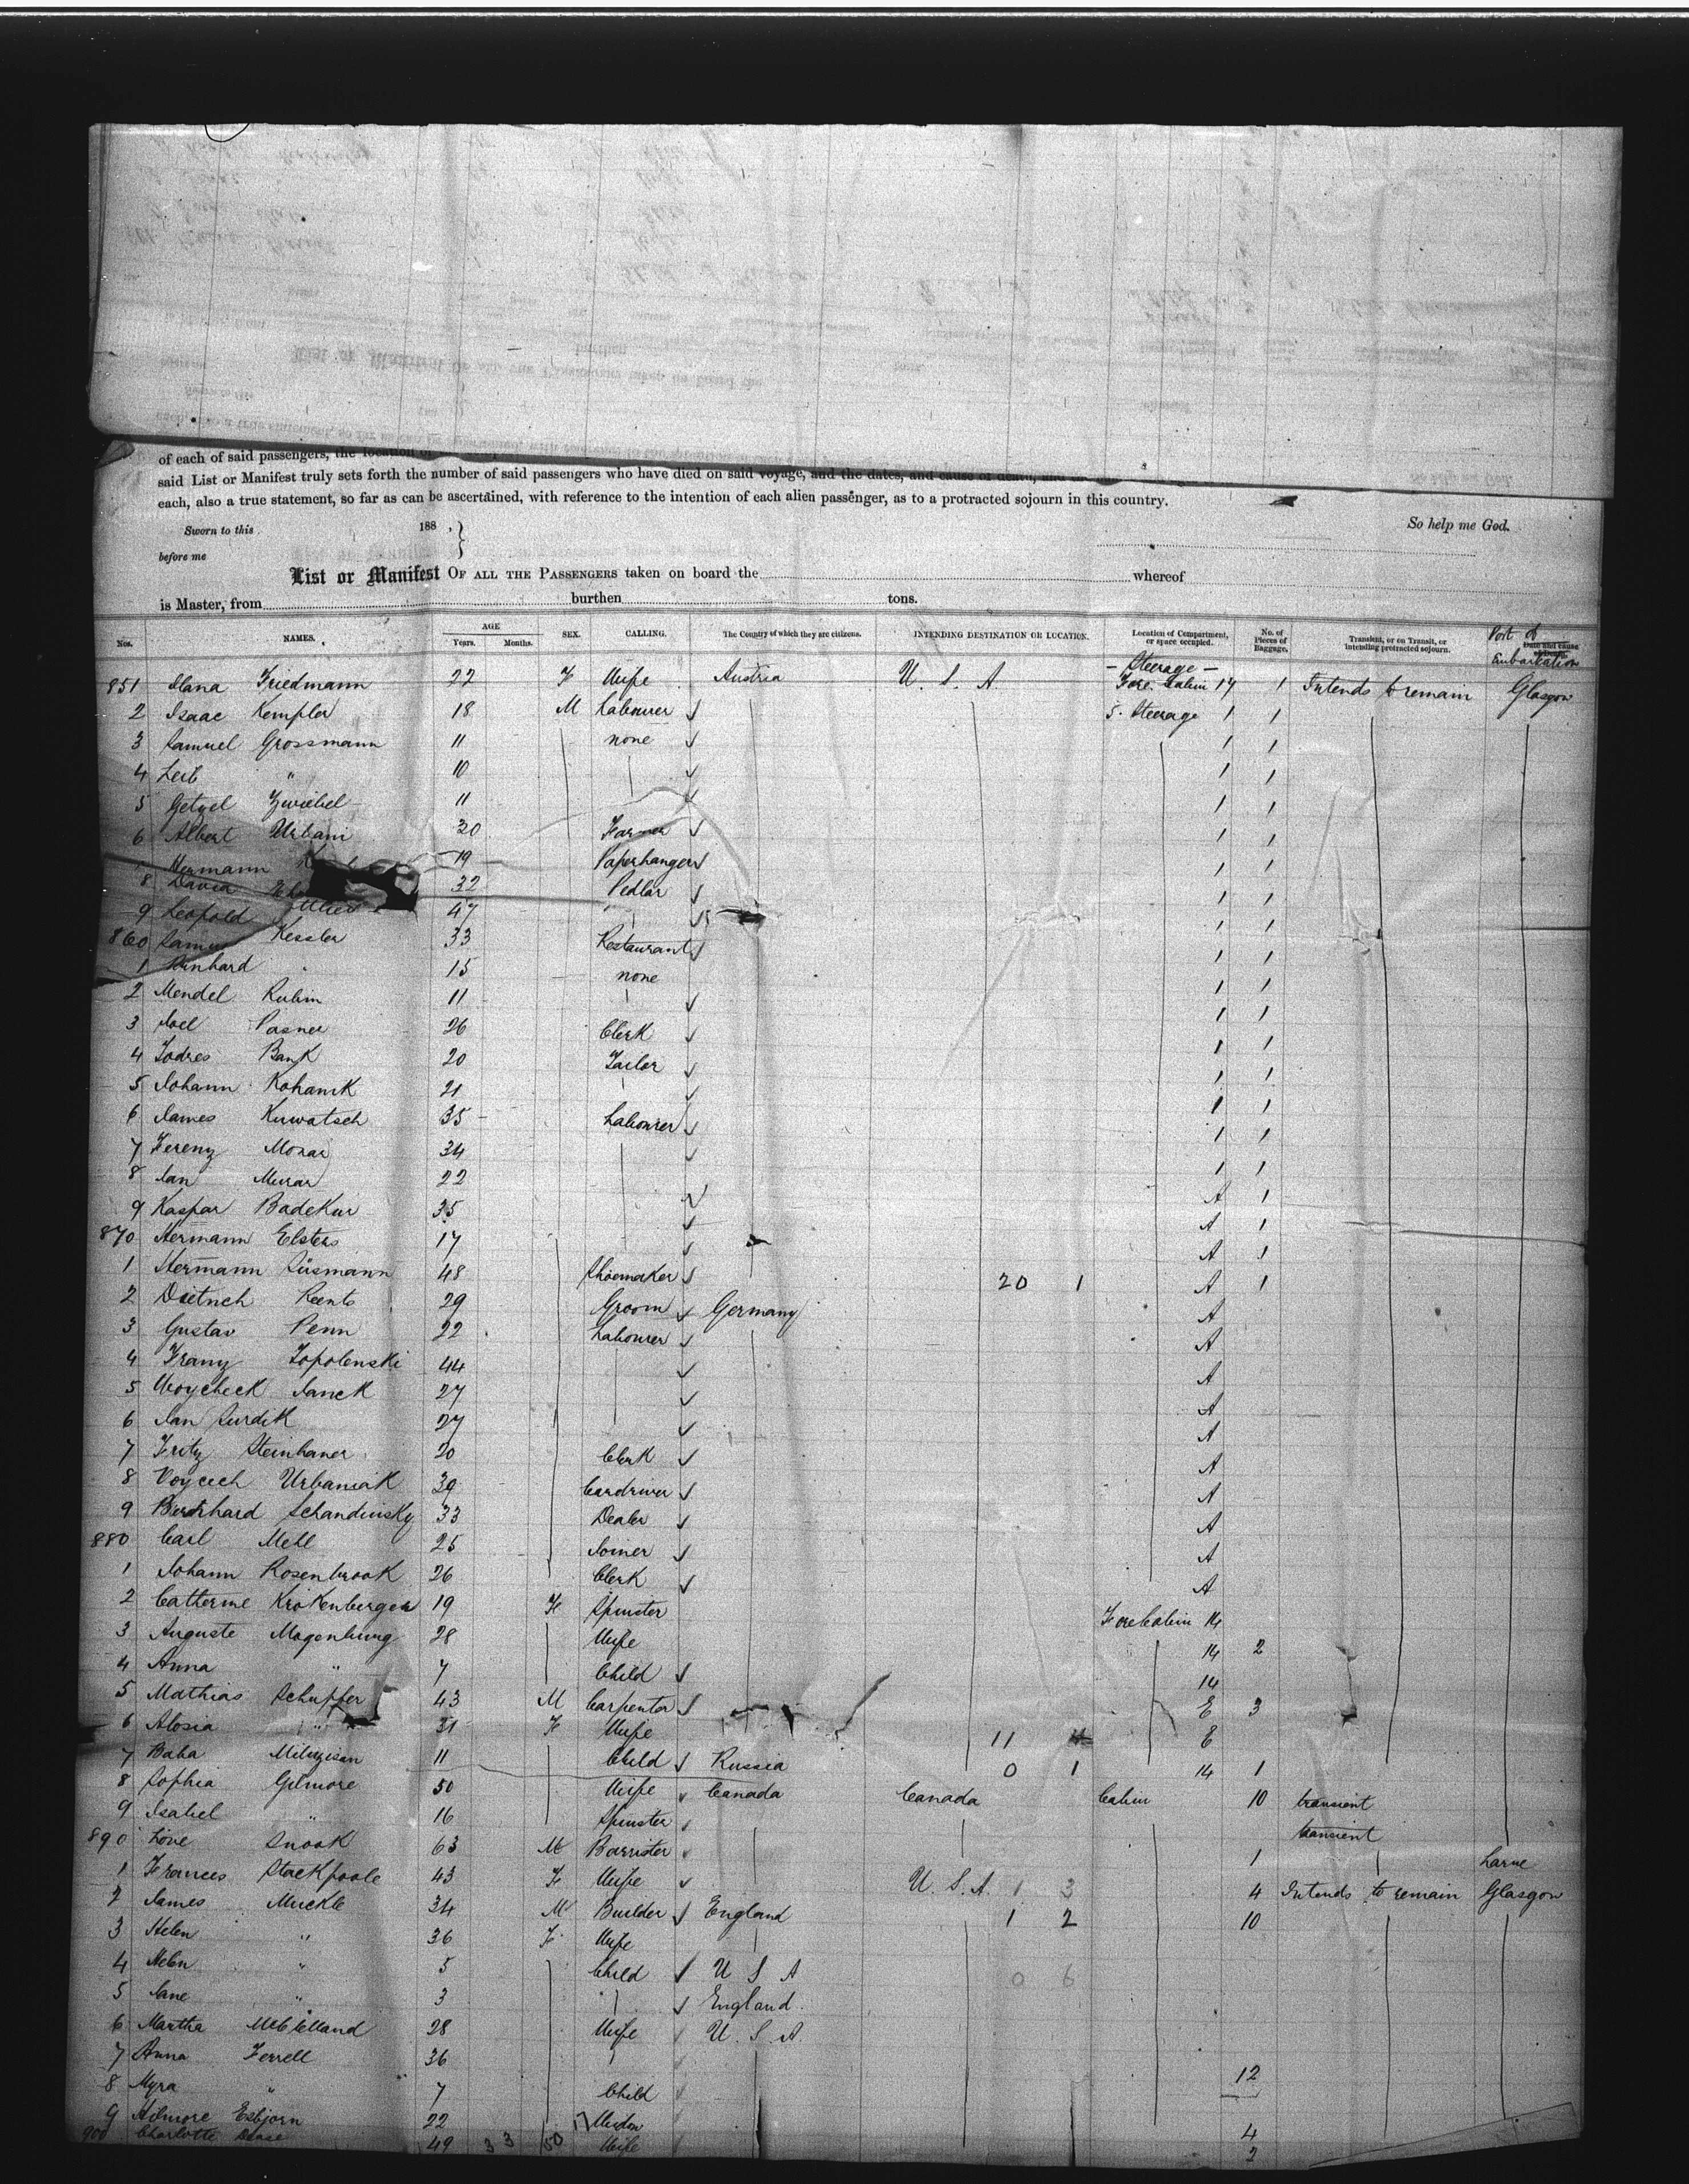 of each of said passengers, the location of
said List or Manifest truly sets forth the number of said passengers who have died on said voyage, and the dates, and cause of death, and
each, also a true statement, so far as can be ascertained, with reference to the intention of each alien passenger, as to a protracted sojourn in this country.
Sworn to this 188 , } So help me God.
before me
List or Manifest OF ALL THE PASSENGERS taken on board the whereof
is Master, from burthen tons.
Nos. NAMES. AGE Years. Months. SEX. CALLING. The Country of which they are citizens. INTENDING DESTINATION OR LOCATION. Location of Compartment, or space occupied. No. of Pieces of Baggage. Transient, or on Transit, or intending protracted sojourn. Port of Embarkation
851 Hana Friedmann 22 F Wife Austria U. S. A. - Steerage - Fore Cabin 14 1 Intends to remain Glasgow
2 Isaac Kempler 18 M Labourer S. Steerage 1 1
3 Samuel Grossmann 11 none 1 1
4 Leib " 10 1 1
5 Getzel Zwiebel 11 1 1
6 Albert Urbani 30 Farmer 1 1
Hermann 19 Paperhanger 1 1
8 David 32 Pedlar 1 1
9 Leopold 47 1 1
860 Samuel Kessler 33 Restaurant 1 1
1 " 15 none 1 1
2 Mendel Rubin 11 1 1
3 Joel Posner 26 Clerk 1 1
4 Todres Bank 20 Tailor 1 1
5 Johann Kohanik 21 1 1
6 James Kuwatsch 35 Labourer 1 1
7 Ferenz Morar 34 1 1
8 Jan Murar 22 A 1
9 Kaspar Badekur 35 A 1
870 Hermann Elsters 17 A 1
1 Hermann Süsmann 48 Shoemaker 20 1 A 1
2 Dietrich Reents 29 Groom Germany A
3 Gustav Penn 22 Labourer A
4 Franz Topolenski 44 A
5 Woycheck Janek 27 A
6 Jan Surdik 27 A
7 Fritz Steinhaner 20 Clerk A
8 Voycech Urbaniak 39 Cardriver A
9 Bernhard Schandinsky 33 Dealer A
880 Carl Mehl 25 Joiner A
1 Johann Rosenbrook 26 Clerk A
2 Catherine Krokenberger 19 F Spinster Fore Cabin 14
3 Auguste Magenburg 28 Wife 14 2
4 Anna " 7 Child 14
5 Mathias Schupfer 43 M Carpenter E 3
6 Alosia " 31 F Wife 11 E
7 Baba 11 Child Russia 0 1 14 1
8 Sophia Gilmore 50 Wife Canada Canada Cabin 10 transient
9 Isabel " 16 Spinster transient
890 Love Snook 63 M Barrister 1 Larne
1 Frances Stackpoole 43 F Wife U. S. A. 1 3 4 Intends to remain Glasgow
2 James Muckle 34 M Builder England 1 2 10
3 Helen " 36 F Wife
4 Helen " 5 Child U S A 0 6
5 Jane " 3 England
6 Martha McClelland 28 Wife U. S. A.
7 Anna Ferrell 36 12
8 Myra " 7 Child
9 Esbjorn 22 4
900 Charlotte 49 3 3 50 Wife 2